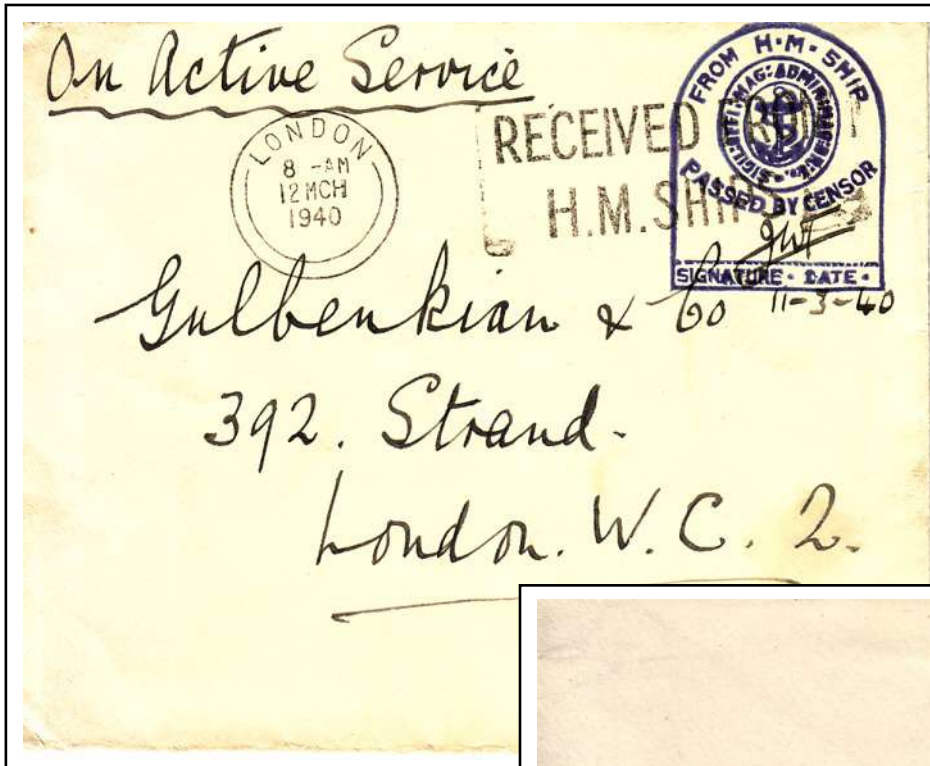 On Active Service
LONDON
8 -AM
12 MCH
1940
RECEIVED FROM
H.M. SHIPS
FROM H·M·SHIP
PASSED BY CENSOR
SIGNATURE · DATE ·
11-3-40
Gulbenkian & Co
392. Strand.
London. W. C. 2.